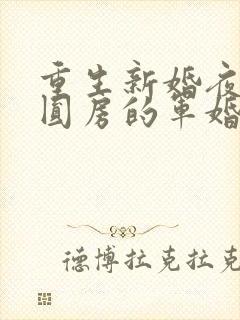 重生新婚夜
圆房的军婚
德博拉克拉克